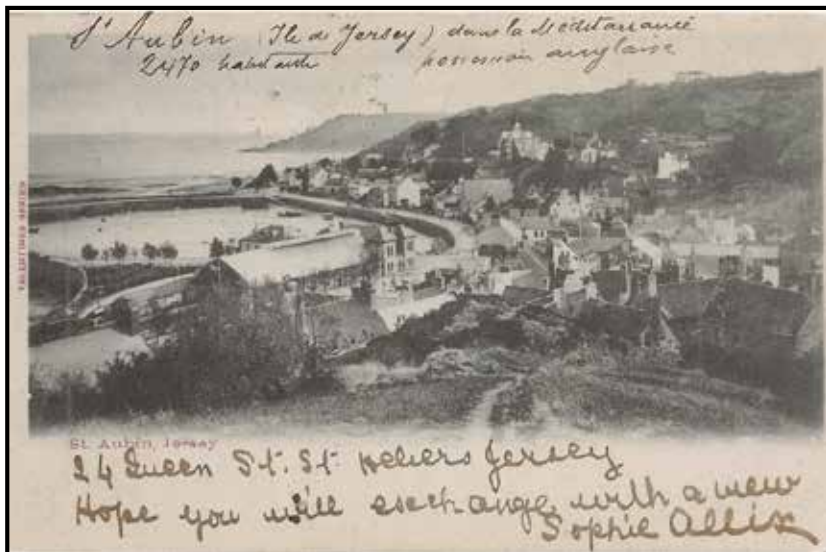 St Aubin (Ile de Jersey) dans la Méditerranée
2470 habitants possession anglaise
VALENTINES SERIES
St. Aubin, Jersey
24 Queen St. St. Heliers Jersey
Hope you will exchange with a view
Sophie Allix